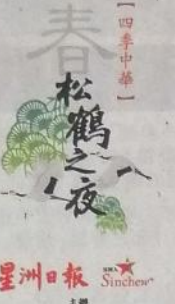 【四季中華】
春
松鶴之夜
星洲日報
Sinchew
主辦